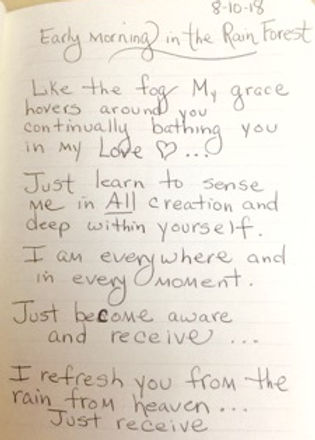 8-10-18
Early Morning in the Rain Forest
Like the fog My grace
hovers around you
continually bathing you
in my Love ♡...
Just learn to sense
me in All creation and
deep within yourself.
I am everywhere and
in every moment.
Just become aware
and receive ...
I refresh you from the
rain from heaven ...
Just receive